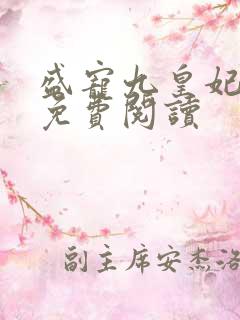 盛寵九皇妃
免費閱讀
副主席安杰洛